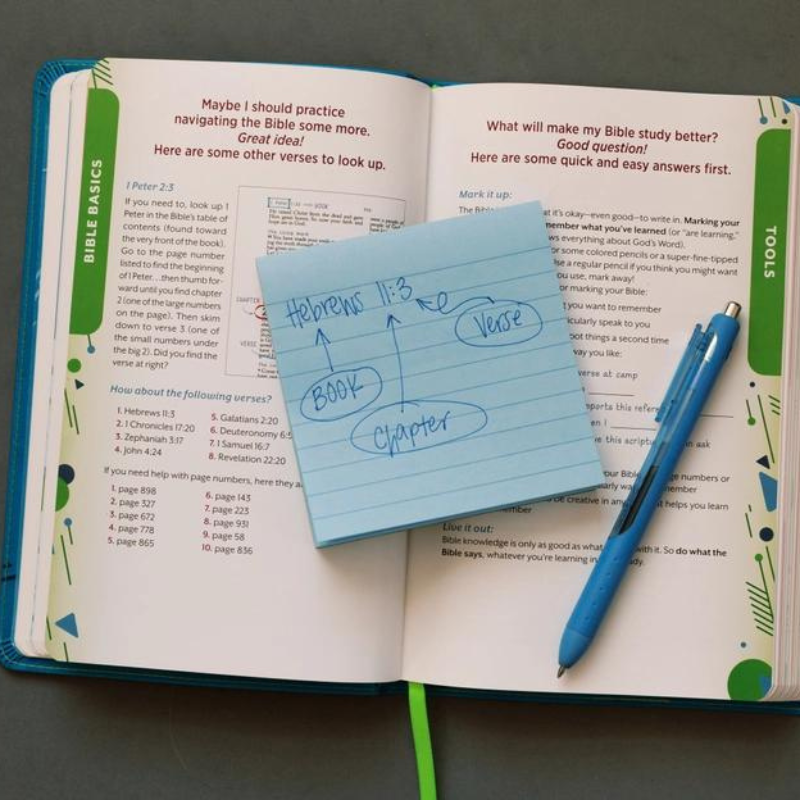 BIBLE BASICS
Maybe I should practice
navigating the Bible some more.
Great idea!
Here are some other verses to look up.
1 Peter 2:3
If you need to, look up 1
Peter in the Bible's table of
contents (found toward
the very front of the book).
Go to the page number
listed to find the beginning
of 1 Peter...then thumb for-
ward until you find chapter
2 (one of the large numbers
on the page). Then skim
down to verse 3 (one of
the small numbers under
the big 2). Did you find the
verse at right?
BOOK
CHAPTER
VERSE
How about the following verses?
1. Hebrews 11:3
2. 1 Chronicles 17:20
3. Zephaniah 3:17
4. John 4:24
5. Galatians 2:20
6. Deuteronomy 6:5
7. 1 Samuel 16:7
8. Revelation 22:20
If you need help with page numbers, here they a
1. page 898
2. page 327
3. page 672
4. page 778
5. page 865
6. page 143
7. page 223
8. page 931
9. page 58
10. page 836
Hebrews 11:3
Verse
BOOK
Chapter
What will make my Bible study better?
Good question!
Here are some quick and easy answers first.
Mark it up:
The Bible at it's okay—even good—to write in. Marking your
member what you've learned (or "are learning,"
ws everything about God's Word).
or some colored pencils or a super-fine-tipped
lse a regular pencil if you think you might want
ou use, mark away!
or marking your Bible:
you want to remember
icularly speak to you
oot things a second time
way you like:
verse at camp
pports this refer
en I
e this scriptu in ask
our Bible ge numbers or
arly wa member
be creative in any t helps you learn
mber
Live it out:
Bible knowledge is only as good as what with it. So do what the
Bible says, whatever you're learning in dy.
TOOLS